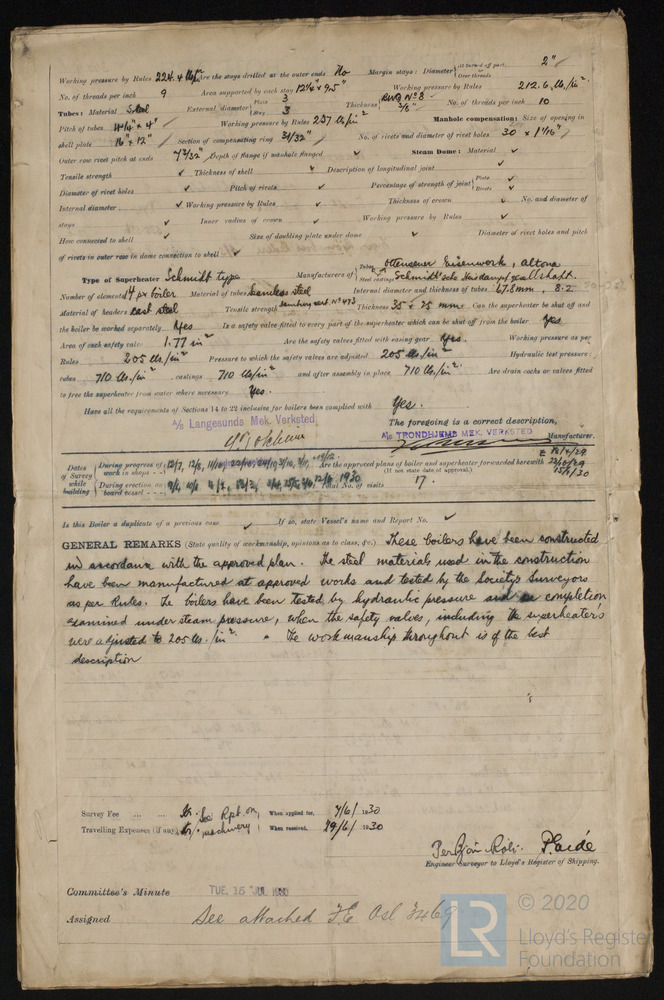 Working pressure by Rules 224.4 lbs/in² Are the stays drilled at the outer ends No Margin stays: Diameter 2"
No. of threads per inch 9 Area supported by each stay Working pressure by Rules 212.6 lbs/in²
Tubes: Material Steel External diameter Plain 3 Stay 3 Thickness BWG No 8 3/8" No. of threads per inch 10
Pitch of tubes Working pressure by Rules 237 lbs/in² Manhole compensation: Size of opening in
shell plate 16" x 12" Section of compensating ring No. of rivets and diameter of rivet holes 30 x 1 1/16"
Outer row rivet pitch at ends Depth of flange if manhole flanged ✓ Steam Dome: Material ✓
Tensile strength ✓ Thickness of shell ✓ Description of longitudinal joint ✓
Diameter of rivet holes ✓ Pitch of rivets ✓ Percentage of strength of joint Plate ✓ Rivets ✓
Internal diameter ✓ Working pressure by Rules ✓ Thickness of crown ✓ No. and diameter of
stays ✓ Inner radius of crown ✓ Working pressure by Rules ✓
How connected to shell ✓ Size of doubling plate under dome ✓ Diameter of rivet holes and pitch
of rivets in outer row in dome connection to shell ✓
Type of Superheater Schmidt type Manufacturers of Tubes Ottensener Eisenwerk, Altona
Steel castings
Number of elements 14 pr boiler Material of tubes Seamless steel Internal diameter and thickness of tubes
Material of headers cast steel Tensile strength Thickness 35 + 25 mm Can the superheater be shut off and
the boiler be worked separately Yes Is a safety valve fitted to every part of the superheater which can be shut off from the boiler Yes
Area of each safety valve 1.77 in² Are the safety valves fitted with easing gear Yes. Working pressure as per
Rules 205 lbs/in² Pressure to which the safety valves are adjusted 205 lbs/in² Hydraulic test pressure:
tubes 710 lbs/in² castings 710 lbs/in² and after assembly in place 710 lbs/in² Are drain cocks or valves fitted
to free the superheater from water where necessary Yes.
Have all the requirements of Sections 14 to 22 inclusive for boilers been complied with Yes.
A/s Langesunds Mek. Verksted The foregoing is a correct description,
A/s TRONDHJEMS MEK. VERKSTED Manufacturer.
Dates of Survey while building
During progress of work in shops Are the approved plans of boiler and superheater forwarded herewith
(If not state date of approval.)
During erection on board vessel 1930 Total No. of visits 17.
Is this Boiler a duplicate of a previous case ✓ If so, state Vessel's name and Report No. ✓
GENERAL REMARKS (State quality of workmanship, opinions as to class, &c.) These boilers have been constructed
in accordance with the approved plan. The steel materials used in the construction
have been manufactured at approved works and tested by the Society's Surveyors
as per Rules. The boilers have been tested by hydraulic pressure and on completion
examined under steam pressure, when the safety valves, including the superheater's
were adjusted to 205 lbs./in². The workmanship throughout is of the best
description
Survey Fee See Rpt. on When applied for, 7/6/ 1930
Travelling Expenses (if any) machinery When received, 19/6/ 1930
Engineer Surveyor to Lloyd's Register of Shipping.
Committee's Minute TUE. 15 JUL 1930
Assigned See attached F.E. Osl 3469
LR © 2020
Lloyd's Register
Foundation